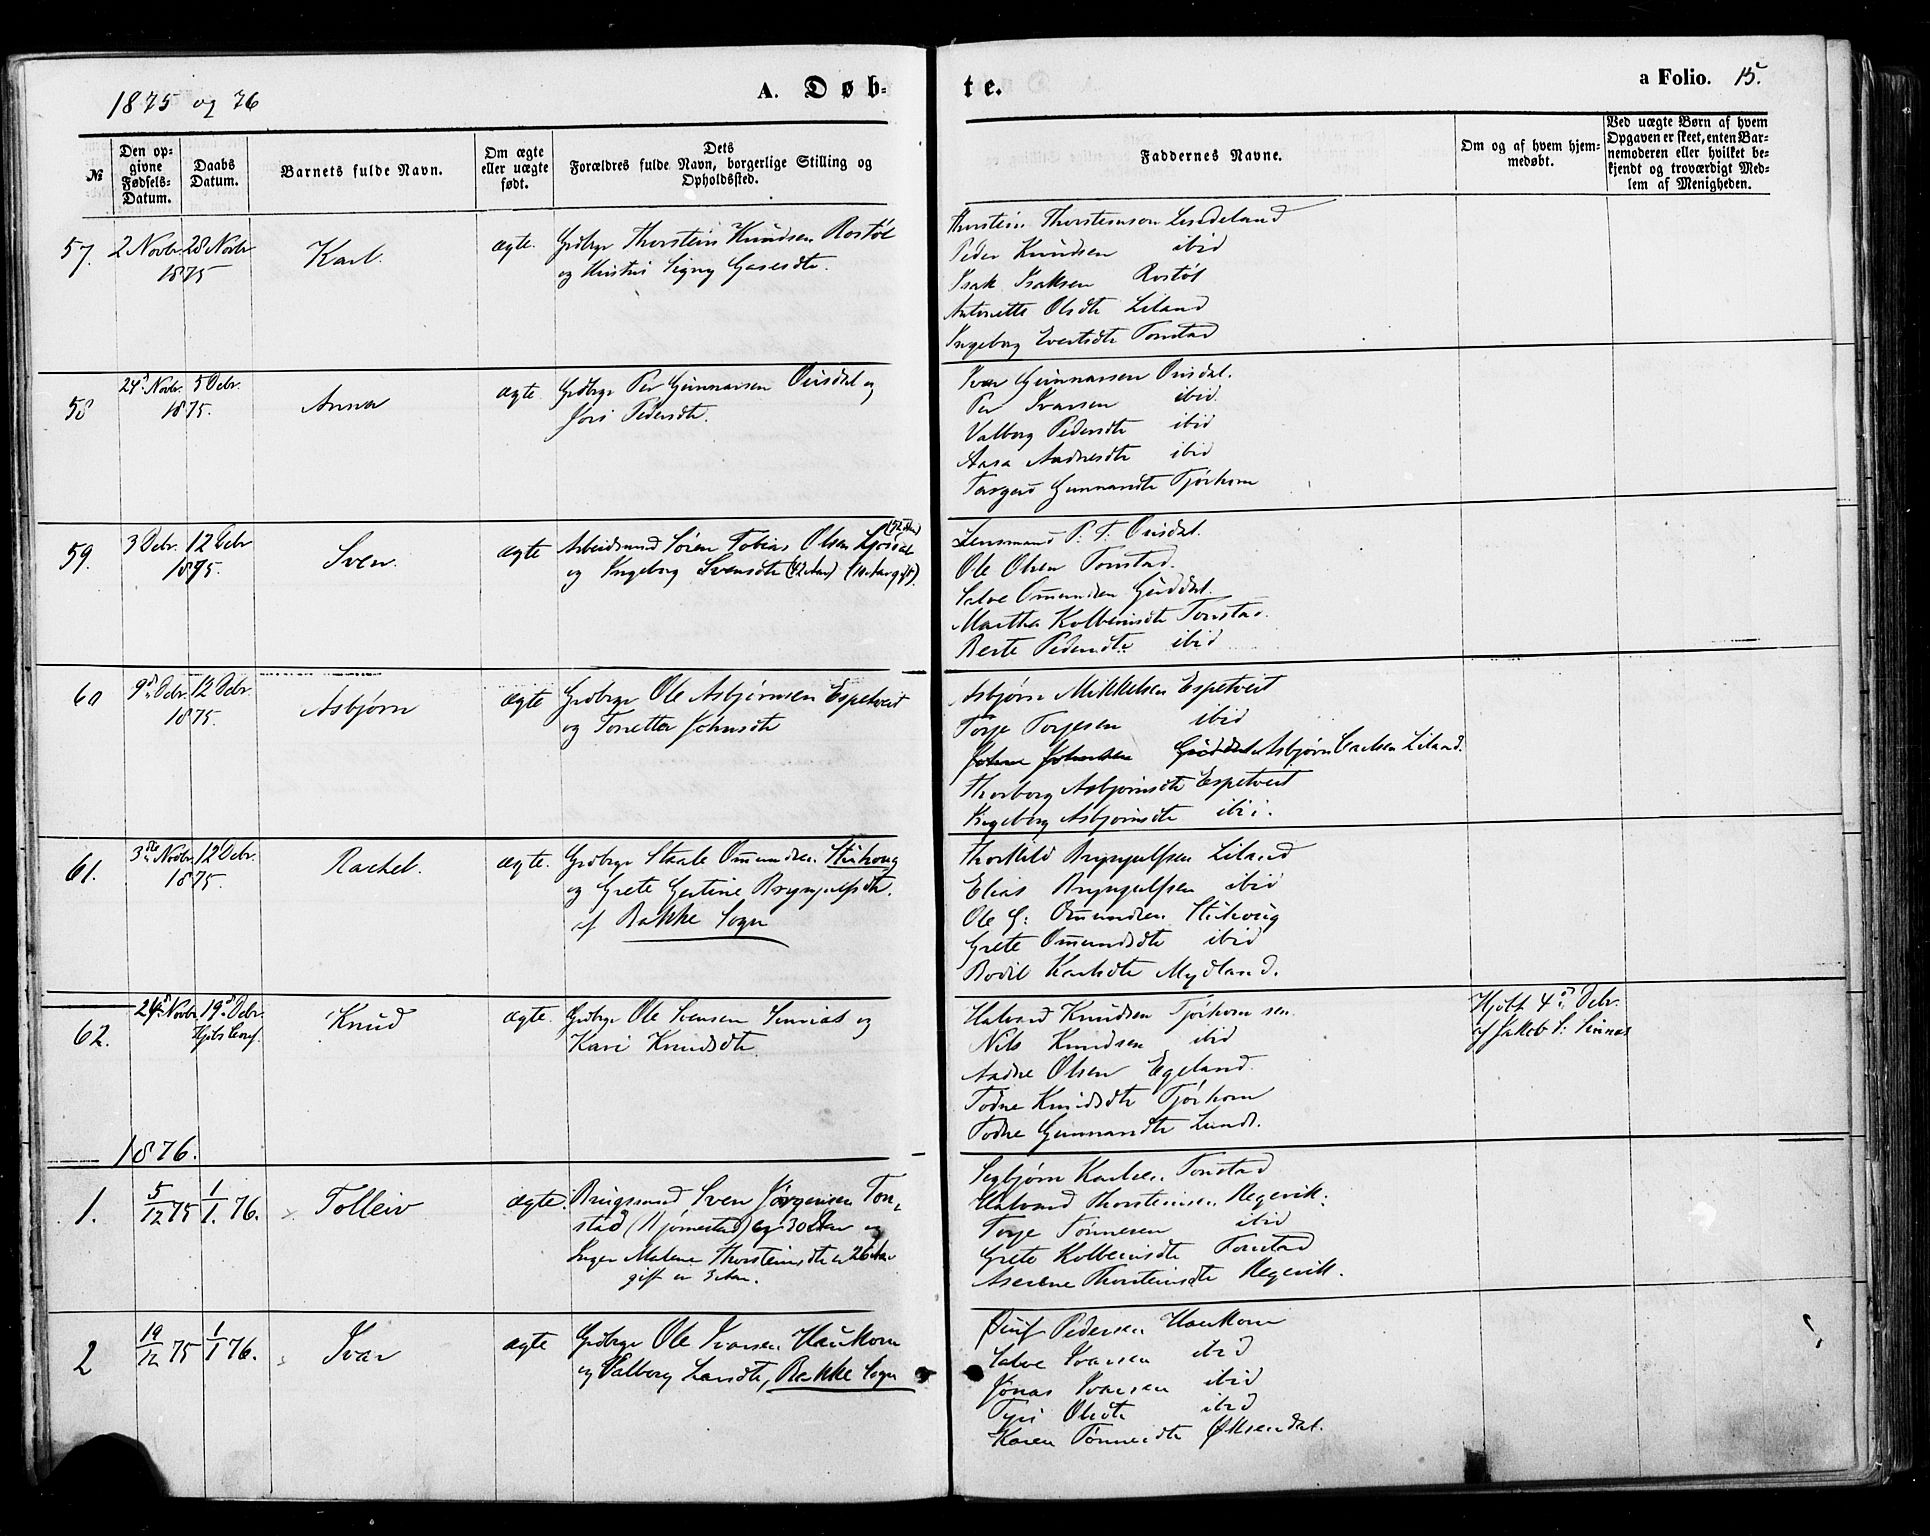 1875 og 76
A. Døb-
te.
a Folio. 15.
№
Den op-
givne
Fødsels-
Datum.
Daabs
Datum.
Barnets fulde Navn.
Om ægte
eller uægte
født.
Dets
Forældres fulde Navn, borgerlige Stilling og
Opholdssted.
Faddernes Navne.
Om og af hvem hjem-
medøbt.
Ved uægte Børn af hvem
Opgaven er skeet, enten Bar-
nemoderen eller hvilket be-
kjendt og troværdigt Med-
lem af Menigheden.
57. 2 Novbr. 28 Novbr
1875
Karl.
ægte.
Grdbrgr Thorstein Knudsen Rostøl
og Hustru Signy Gasesdtr.
Thorstein Thorsteinson Lindeland
Peder Knudsen ibid
Isak Isaksen Rostøl
Antonette Olsdtr Liland
Ingeborg Evertsdtr Tonstad
58 24d Novbr. 5 Debr.
1875.
Anna
ægte.
Grdbrgr Per Gunnarsen Ousdal og
Jori Pedersdtr.
Ivar Gunnarsen Ousdal.
Per Ivarsen ibid.
Valborg Pedersdtr ibid
Aasa Andresdtr ibid
Torgerd Gunnarsdtr Tjørhom
59. 3 Debr. 12 Debr
1875.
Sven.
ægte
Arbeidsmand Søren Tobias Olsen
og Ingeborg Svensdtr (42 Aar) (10 Aar gift).
Lensmand P. T. Ousdal.
Ole Olsen Tonstad.
Salve Omundsen Guddal.
Martha Kolbeinsdtr Tonstad.
Berte Pedersdtr ibid
60 9d Debr. 12 Debr.
1875.
Asbjørn
ægte
Grdbrgr Ole Asbjørnsen Espetveit
og Tonette Johnsdtr
Asbjørn Mikkelsen Espetveit
Torje Torjesen ibid
Asbjørn Carlsen Liland.
Thorborg Asbjørnsdtr Espetveit
Ingeborg Asbjørnsdtr ibi.
61. 3die Novbr. 12 Debr.
1875.
Rachel.
ægte.
Grdbrgr Staale Omundsen Stuhoug
og Grete Gertine Bryngulfsdtr.
af Bakke Sogn
Thorkild Bryngulfsen Liland
Elias Bryngulfsen ibid
Ole G: Omundsen Stuhoug
Grete Omundsdtr ibid
Bodil Karlsdtr Mydland.
62. 29d Novbr. 19d Debr.
Knud
ægte.
Grdbrgr Ole Svensen Sinnes og
Kari Knudsdtr.
Halvard Knudsen Tjørhom sen.
Nils Knudsen ibid
Andre Olsen Egeland.
Todne Knudsdtr Tjørhom
Todne Gunnarsdtr Lunde.
Hjdbt 4d Debr.
af Jakob S: Sinnes
1876.
1. 5/12 75 1/1. 76.
Tolleiv
ægte.
Brugsmand Sven Jørgensen Ton-
stad (Hjømestad) er 30 Aar og
Inger Malene Thorsteinsdtr er 26 Aar
gift er 3 Aar.
Segbjørn Karlsen Tonstad
Halvard Thorsteinsen Regevik.
Torje Tønnesen ibid
Grete Kolbeinsdtr Tonstad
Aserene Thorsteinsdtr Regevik.
2 19/12 75 1/1 76.
Ivar
ægte
Grdbrgr Ole Ivarsen Haukom
og Valborg Larsdtr, Bakke Sogn
Pedersen Haukom
Salve Ivarsen ibid
Jonas Ivarsen ibid
Olsdtr ibid
Karen Tønnesdtr Øksendal.